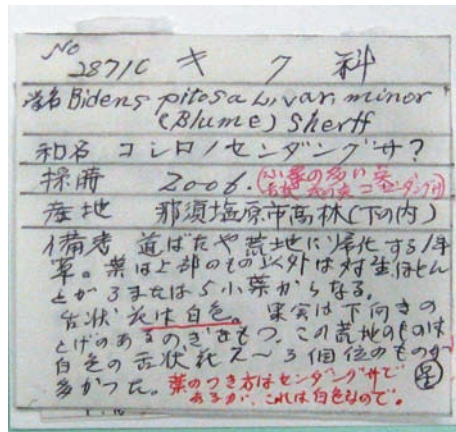 No 2871C キク科
学名 Bidens pitosa L. var. minor
(Blume) Sherff
和名 コシロノセンダングサ?
採時 2006. (小葉の多い
コセンダングサ)
産地 那須塩原市高林(下の内)
備考 道ばたや荒地に帰化する1年
草。葉は上部のもの以外は対生ほとん
どが3または5小葉からなる。
舌状花は白色。果実は下向きの
とげのあるのぎをもつ。この荒地のものは
白色の舌状花2〜3個位のものが
多かった。葉のつき方はセンダングサで
あるが、これは白色なので。